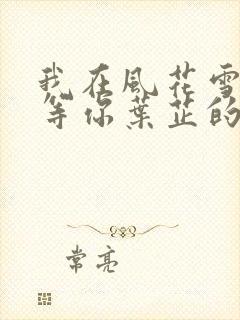 我在風花雪
等你葉芷的
常亮